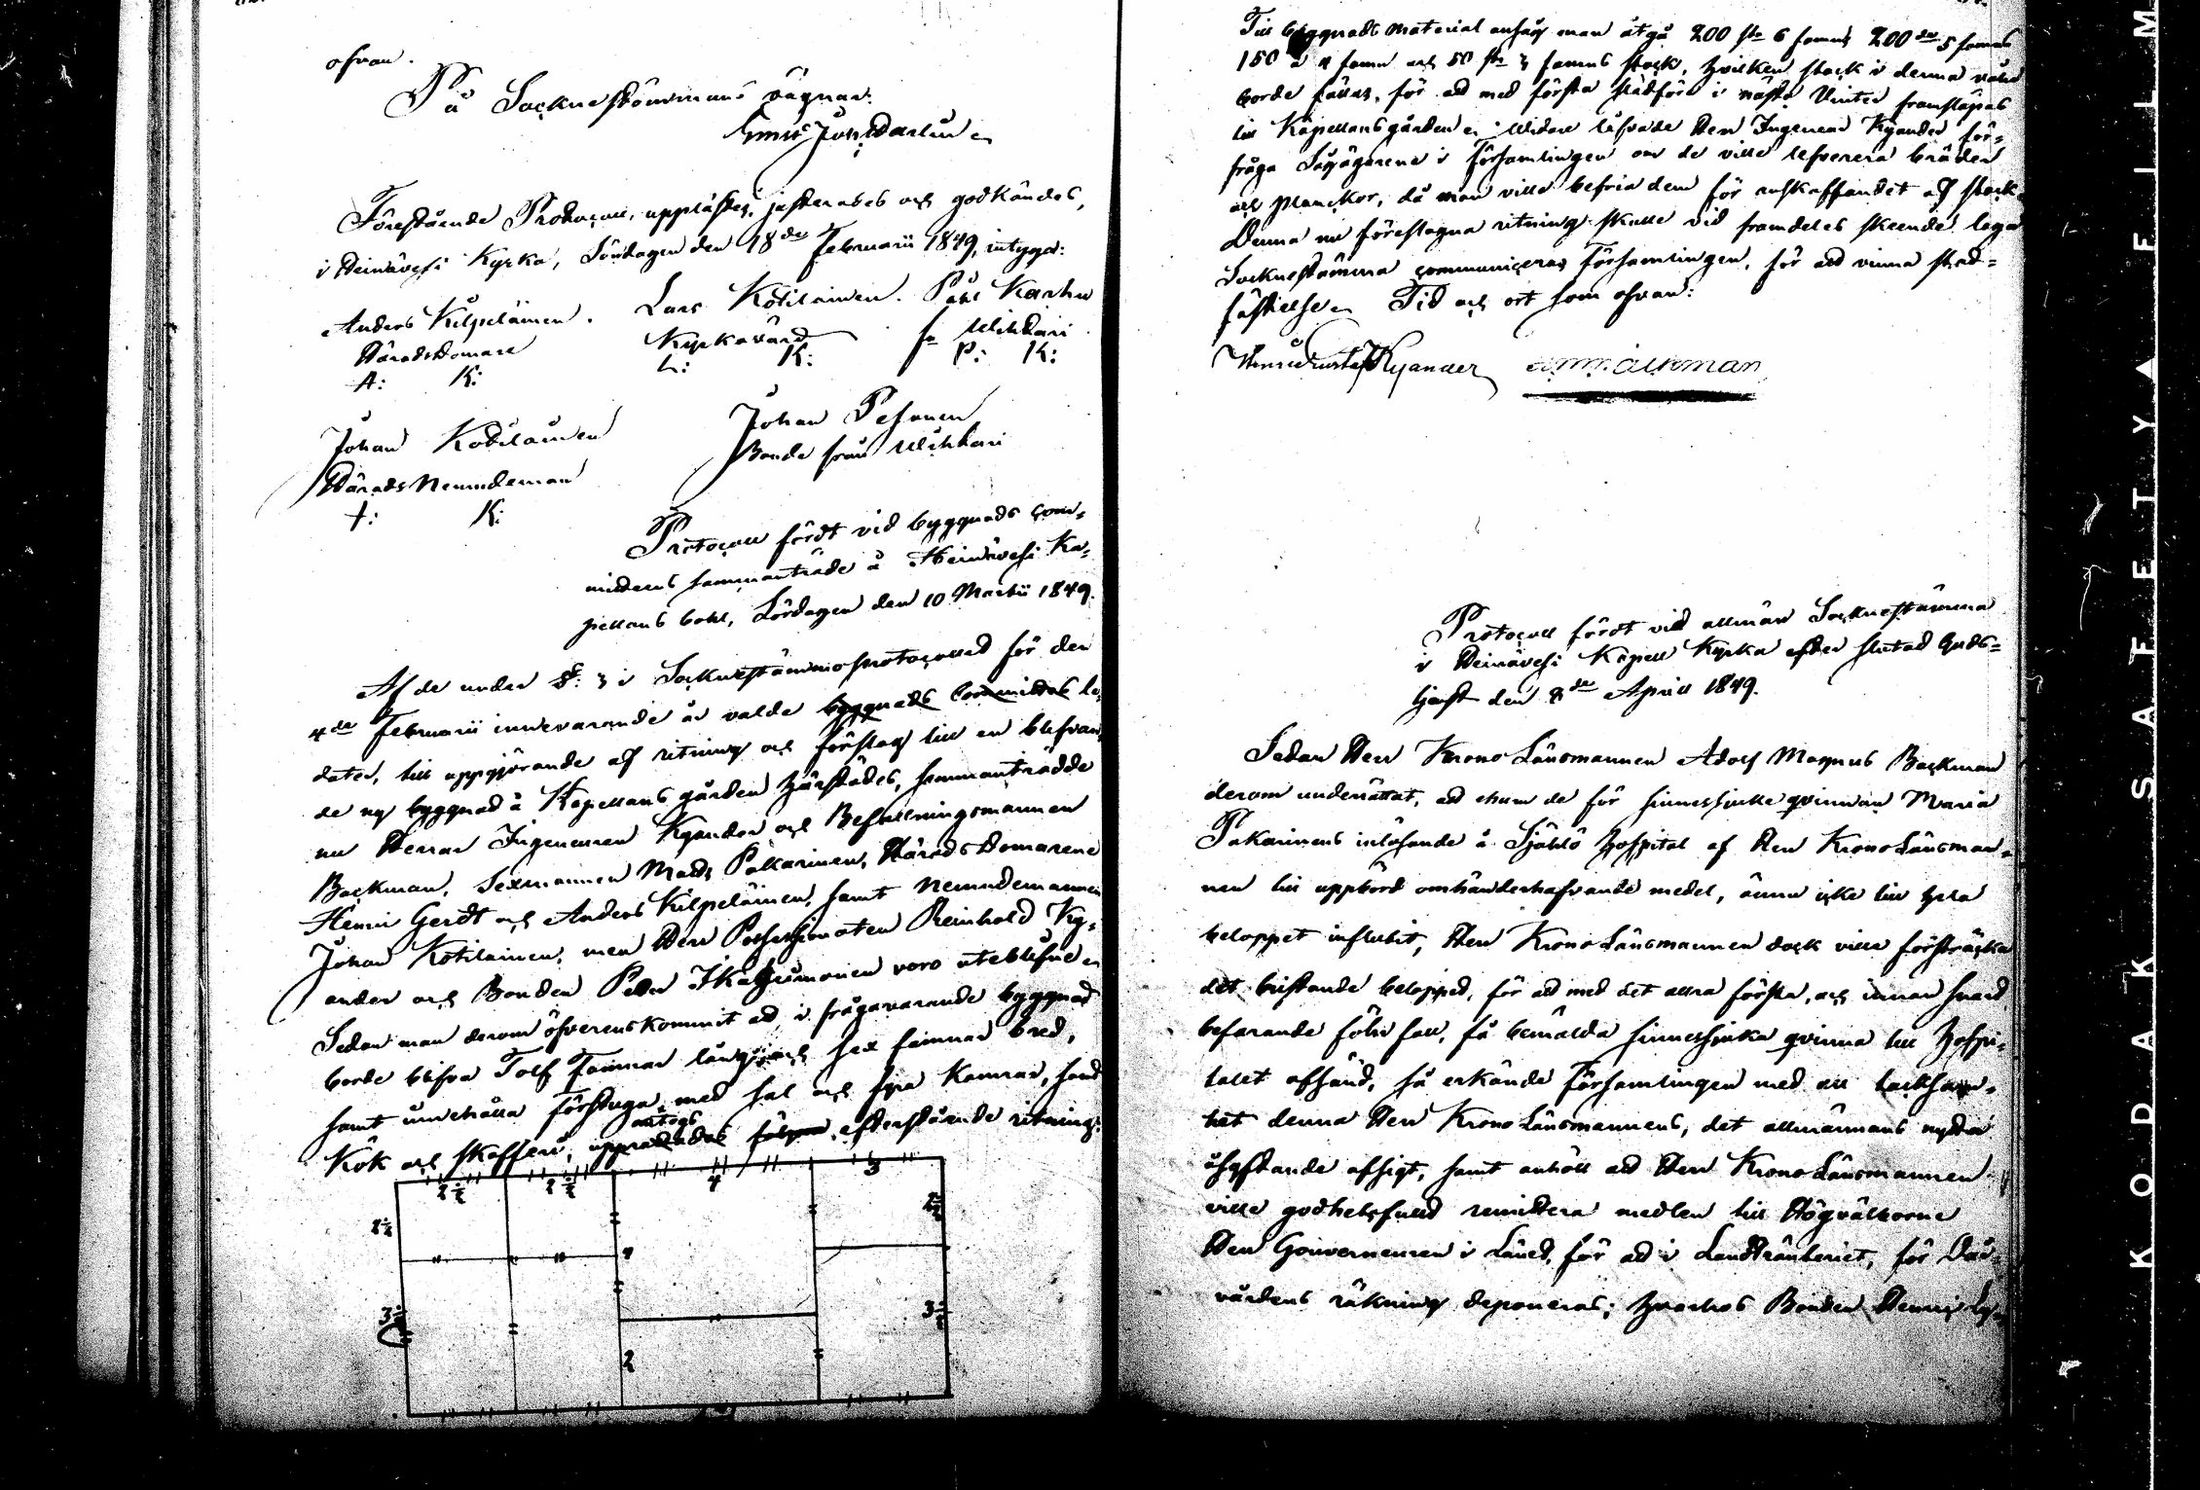 ofvan.
På Sockneståmmans vägnar:
Ernst Joh: Dahlin
Förestående Protocoll, upplästes, justerades och godkändes,
i Heinävesi Kyrka, Söndagen den 18de Februarii 1849, intyga:
Anders Kilpeläinen. Lars Kotilainen. Påhl Karhu
HäradsDomare Kyrkovärd fr
A: K: L: K: P: K:
Johan Kotilainen Johan Pesonen
Härads Nemndeman Bonde från
J: K:
Protocoll fördt vid byggnads com-
mitténs sammanträde å Heinävesi Ka-
pellans bohl, Lördagen den 10 Martii 1849.
Af de under §: 3 i Sockneståmmoprotocollet för den
4de Februarii innevarande år valde byggnads Committé le-
dater, till uppgjörande af ritning och förslag till en blifvan-
de ny byggnad å Kapellansgården härstädes, sammanträdde
nu Herrar Ingeneuren Kyander och Befallningsmannen
Backman, Sexmannen Mats Pakarinen, HäradsDomarene
Henric Gerdt och Anders Kilpeläinen, samt Nemndemannen
Johan Kotilainen, men Herr Possessionaten Reinhold Ky-
ander och Bonden Petter Ikäheimonen voro uteblifne.
Sedan man derom öfverenskommit att i frågavarande byggnad
borde blifva Tolf Famnar lång och sex famnar bred,
samt innehålla förstuga med sal och fyra Kamrar, samt
antogs
Kök och skafferi, uppradades följan efterstående ritning:
2½ 2½ 4 3
2½ 2½
4
3½ 3½
2
Till byggnads material ansåg man åtgå 200 st: 6 famns 200 dto 5 famns
150 a 4 famn och 50 st: 3 famns stock, hvilken stock i denna vår
borde fällas, för att med första slädföre i nästa Vinter framsläpas
till Kapellansgården. Vidare lofvade Herr Ingeneur Kyander för-
fråga Sågägarene i församlingen om de ville lefverera bräder
och planckor, då man ville befria dem för anskaffandet af stock.
Denna nu föreslagna ritning skulle vid framdeles skeende laga
Sockneståmma communiceras Församlingen, för att vinna stad-
fästelse. Tid och ort som ofvan:
Henric Gustaf Kyander Ad. M. Backman
Protocoll fördt vid allmän Sockneståmma
i Heinävesi Kapell Kyrka efter slutad Guds-
tjenst den 8de April 1849.
Sedan Herr KronoLänsmannen Adolf Magnus Backman
derom underrättat, att ehuru de för sinnessjuka qvinnan Maria
Pakarinens inlösande å Själö Hospital af Herr KronoLänsman-
nen till uppbörd omhänderhafvande medel, ännu icke till hela
beloppet influtit, Herr KronoLänsmannen dock ville försträcka
det bristande beloppet, för att med det allra första, och innan
befarande före fall, få bemälda sinnessjuka qvinna till Hospi-
talet afsänd, så erkände Församlingen med all tacksam-
het denna Herr KronoLänsmannens, det allmännas nytta
åsyftande afsigt, samt anhöll att Herr KronoLänsmannen
ville godhetsfullt remittera medlen till Högvälborne
Herr Gouverneuren i Länet, för att i Landtränteriet, för Dår-
vårdens räkning deponeras; hvarhos Bonden Henric
KODAK SAFETY FILM